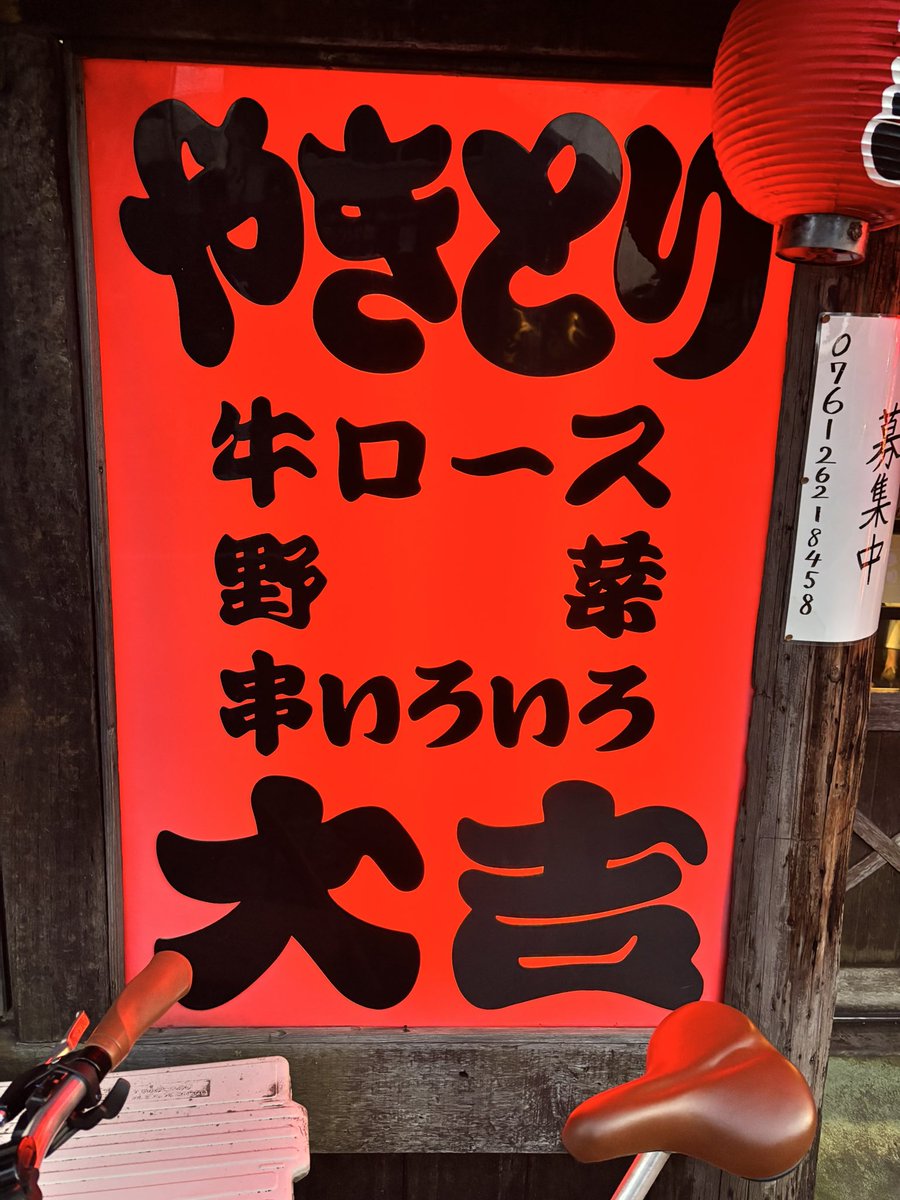 やきとり
牛ロース
野菜
串いろいろ
大吉
募集中
076126218458